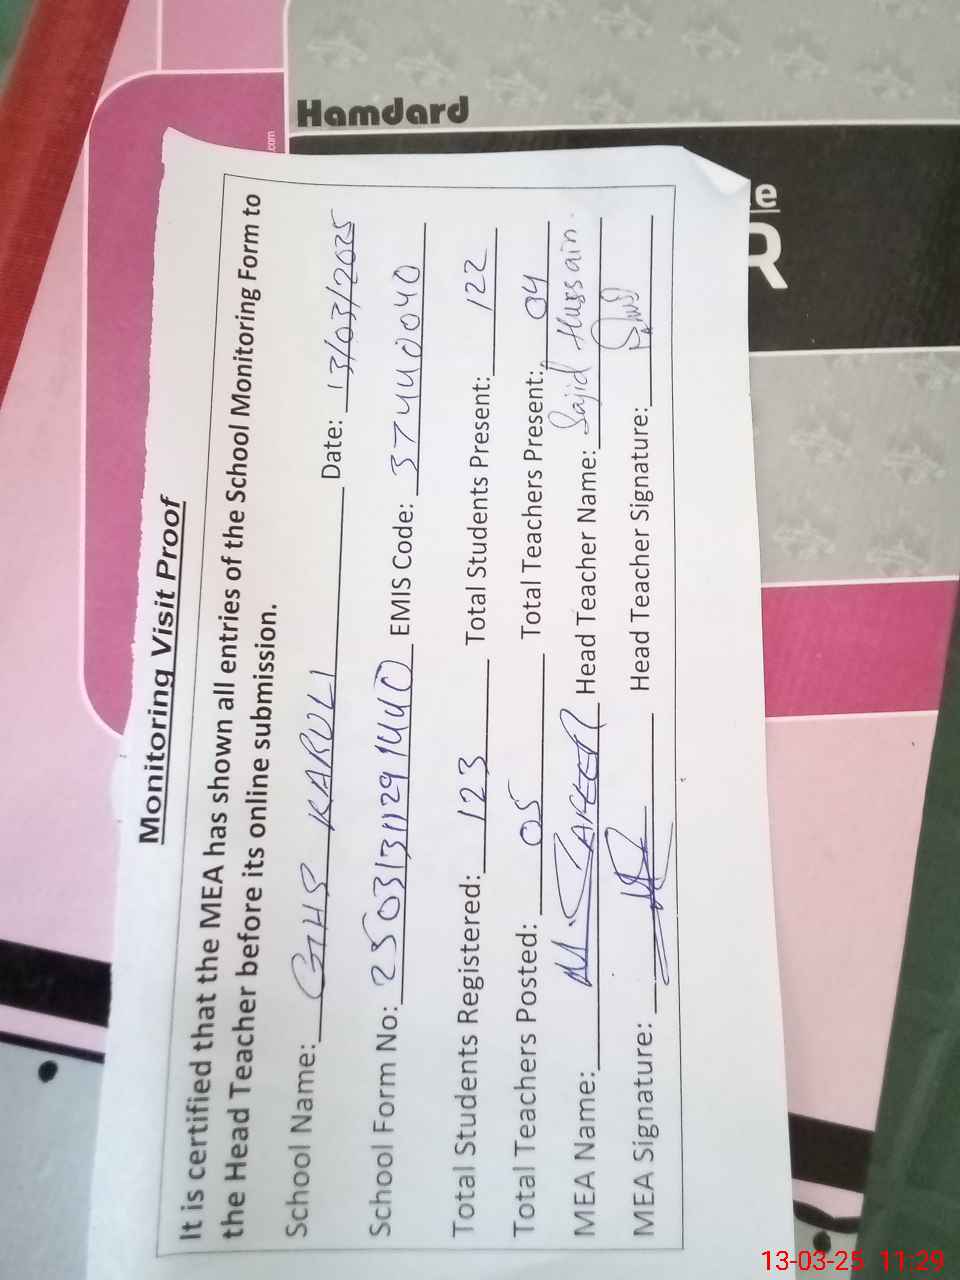 Hamdard
.com
Monitoring Visit Proof
It is certified that the MEA has shown all entries of the School Monitoring Form to
the Head Teacher before its online submission.
School Name: GHS KAROLI Date: 13/03/2025
School Form No: 250313112914440 EMIS Code: 37440040
Total Students Registered: 123 Total Students Present: 122
Total Teachers Posted: 05 Total Teachers Present: 04
MEA Name: M. Head Teacher Name: Sajid Hussain.
MEA Signature: Head Teacher Signature:
13-03-25 11:29